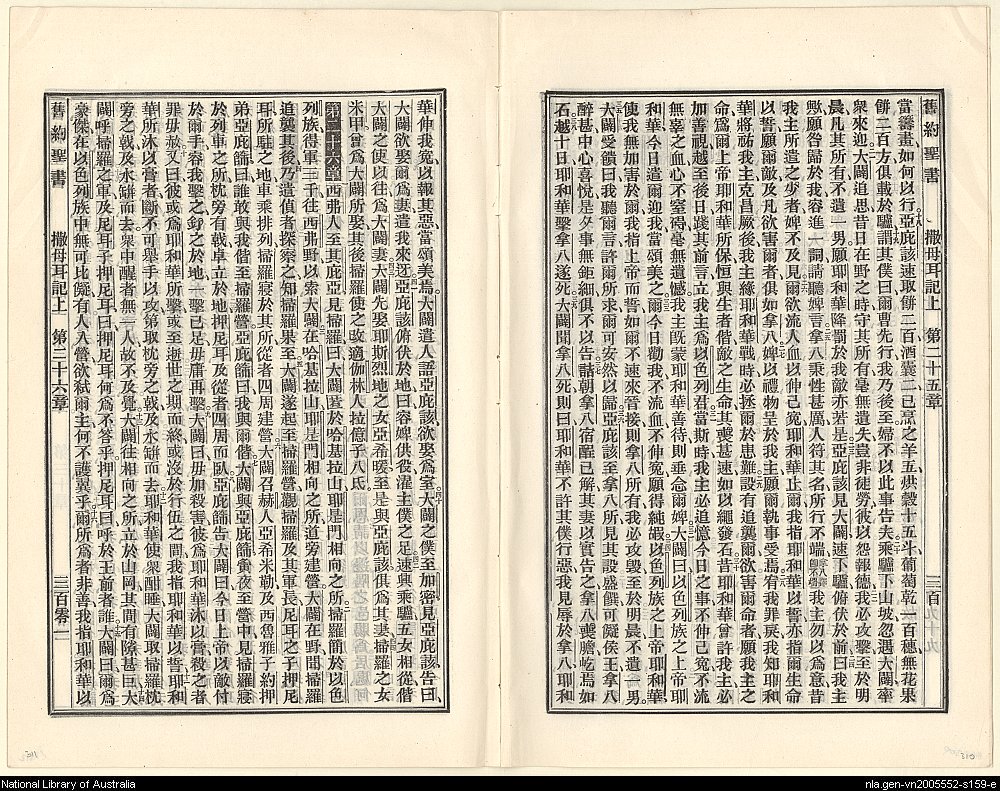 舊約聖書 撒母耳記上 第二十五章 三百
當籌畫如何以行亞庇該速取餅二百酒囊二已烹之羊五烘穀十五斗葡萄乾一百穗無花果
餅二百方俱載於驢謂其僕曰爾曹先行我乃後至婦不以此事告夫乘驢下山坡忽遇大闢率
衆來迎大闢追思昔日在野之時守其所有毫無遺失豈非徒勞彼以怨報德我必攻擊至於明
晨凡其所有不遺一男願耶和華降罰於我敵亦若是亞庇該見大闢速下驢俯伏於前曰我主
歟願咎歸於我容進一詞請聽婢言拿八秉性甚厲人符其名所行不端我主勿以爲意昔
我主所遣之少者婢不及見爾欲流人血以伸己寃耶和華止爾我指耶和華以誓亦指爾生命
以誓願爾敵及凡欲害爾者俱如拿八婢以禮物呈於我主願爾執事受焉宥我罪戾我知耶和
華將祐我主克昌厥後我主緣耶和華戰時必拯爾於患難設有追襲爾欲害爾命者願我主之
命爲爾上帝耶和華所保恒與生者偕敵之生命其喪甚速如以繩發石昔耶和華曾許我主必
加善視越至後日踐其前言立我主爲以色列君當斯時我主必追憶今日之事不伸己寃不流
無辜之血心不窒碍毫無遺憾我主旣蒙耶和華善待則垂念爾婢大闢曰以色列族之上帝耶
和華今日遣爾迎我當頌美之爾今日勸我不流血不伸寃願得純嘏以色列族之上帝耶和華
使我無加害於爾我指上帝而誓如爾不速來晉接則拿八所有我必攻毀至於明晨不遺一男
大闢受饋曰我聽爾言許所求爾可安然以歸亞庇該至拿八所見其設盛饌可儗侯王拿八
醉甚中心喜悅是夕事無鉅細俱不以告詰朝拿八宿酲已解其妻以實告之拿八喪膽屹焉如
石越十日耶和華擊拿八遂死大闢聞拿八死則曰耶和華不許其僕行惡我見辱於拿八耶和
華伸我寃以報其惡當頌美焉大闢遣人語亞庇該欲娶爲室大闢之僕至加密見亞庇該告曰
大闢欲娶爾爲妻遣我來迓亞庇該俯伏於地曰容婢供役濯主僕之足速興乘驢五女相從偕
大闢之使以往爲大闢妻大闢先娶耶斯烈地之女亞希暖至是與亞庇該俱爲其妻掃羅之女
米甲曾爲大闢所娶其後掃羅使之改適伽林人拉億子八忒
第二十六章西弗人至其庇亞見掃羅曰大闢匿於哈基拉山耶是門相向之所掃羅簡於以色
列族得軍三千往西弗野以索大闢在哈基拉山耶是門相向之所道旁建營大闢在野聞掃羅
追襲其後乃遣偵者探察之知掃羅果至大闢遂起至掃羅營觀掃羅及其軍長尼耳之子押尼
耳所駐之地車乘排列掃羅寢於其所從者四周建營大闢召赫人亞希米勒及西魯雅子約押
弟亞庇篩曰誰敢與我偕至掃羅營亞庇篩曰我與爾偕大闢與亞庇篩夤夜至營中見掃羅寢
於列車之所枕旁有戟卓立於地押尼耳及從者四周而臥亞庇篩告大闢曰今日上帝以敵付
於爾手容我擊之釘之於地一擊已足毋庸再擊大闢曰毋加殺害彼爲耶和華沐以膏殺之者
罪毋赦又曰彼或爲耶和華所擊或至逝世之期而終或沒於行伍之間我指耶和華以誓耶和
華所沐以膏者斷不可舉手以攻第取枕旁之戟及水缾而去耶和華使衆酣睡大闢取掃羅枕
旁之戟及水缾而去衆中醒者無一人故不及覺大闢往相向之所立於山岡其間有隙甚巨大
闢呼掃羅之軍及尼耳子押尼耳曰押尼耳何爲不答乎押尼耳曰呼於王前者誰大闢曰爾爲
豪傑在以色列族中無可比儗有人入營欲弒爾主何不護翼乎爾所爲者非善我指耶和華以
舊約聖書 撒母耳記上 第二十六章 三百零一
National Library of Australia
nla.gen-vn2005552-s159-e